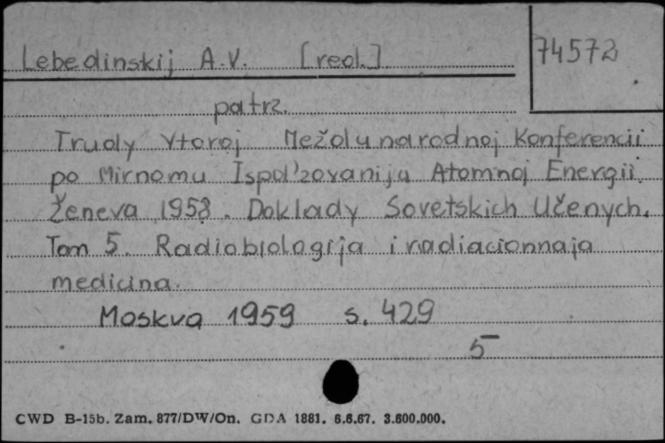 Lebedinskij A.V. [red.] 74572
patrz.
Trudy Vtoroj Meždunarodnoj Konferencii
po Mirnomu Ispol'zovaniju Atomnoj Energii.
Ženeva 1958. Doklady Sovetskich Učenych.
Tom 5. Radiobiologija i radiacionnaja
medicina.
Moskva 1959 s. 429
5
CWD B-15b. Zam. 877/DW/On. GDA 1881. 6.6.67. 3.600.000.